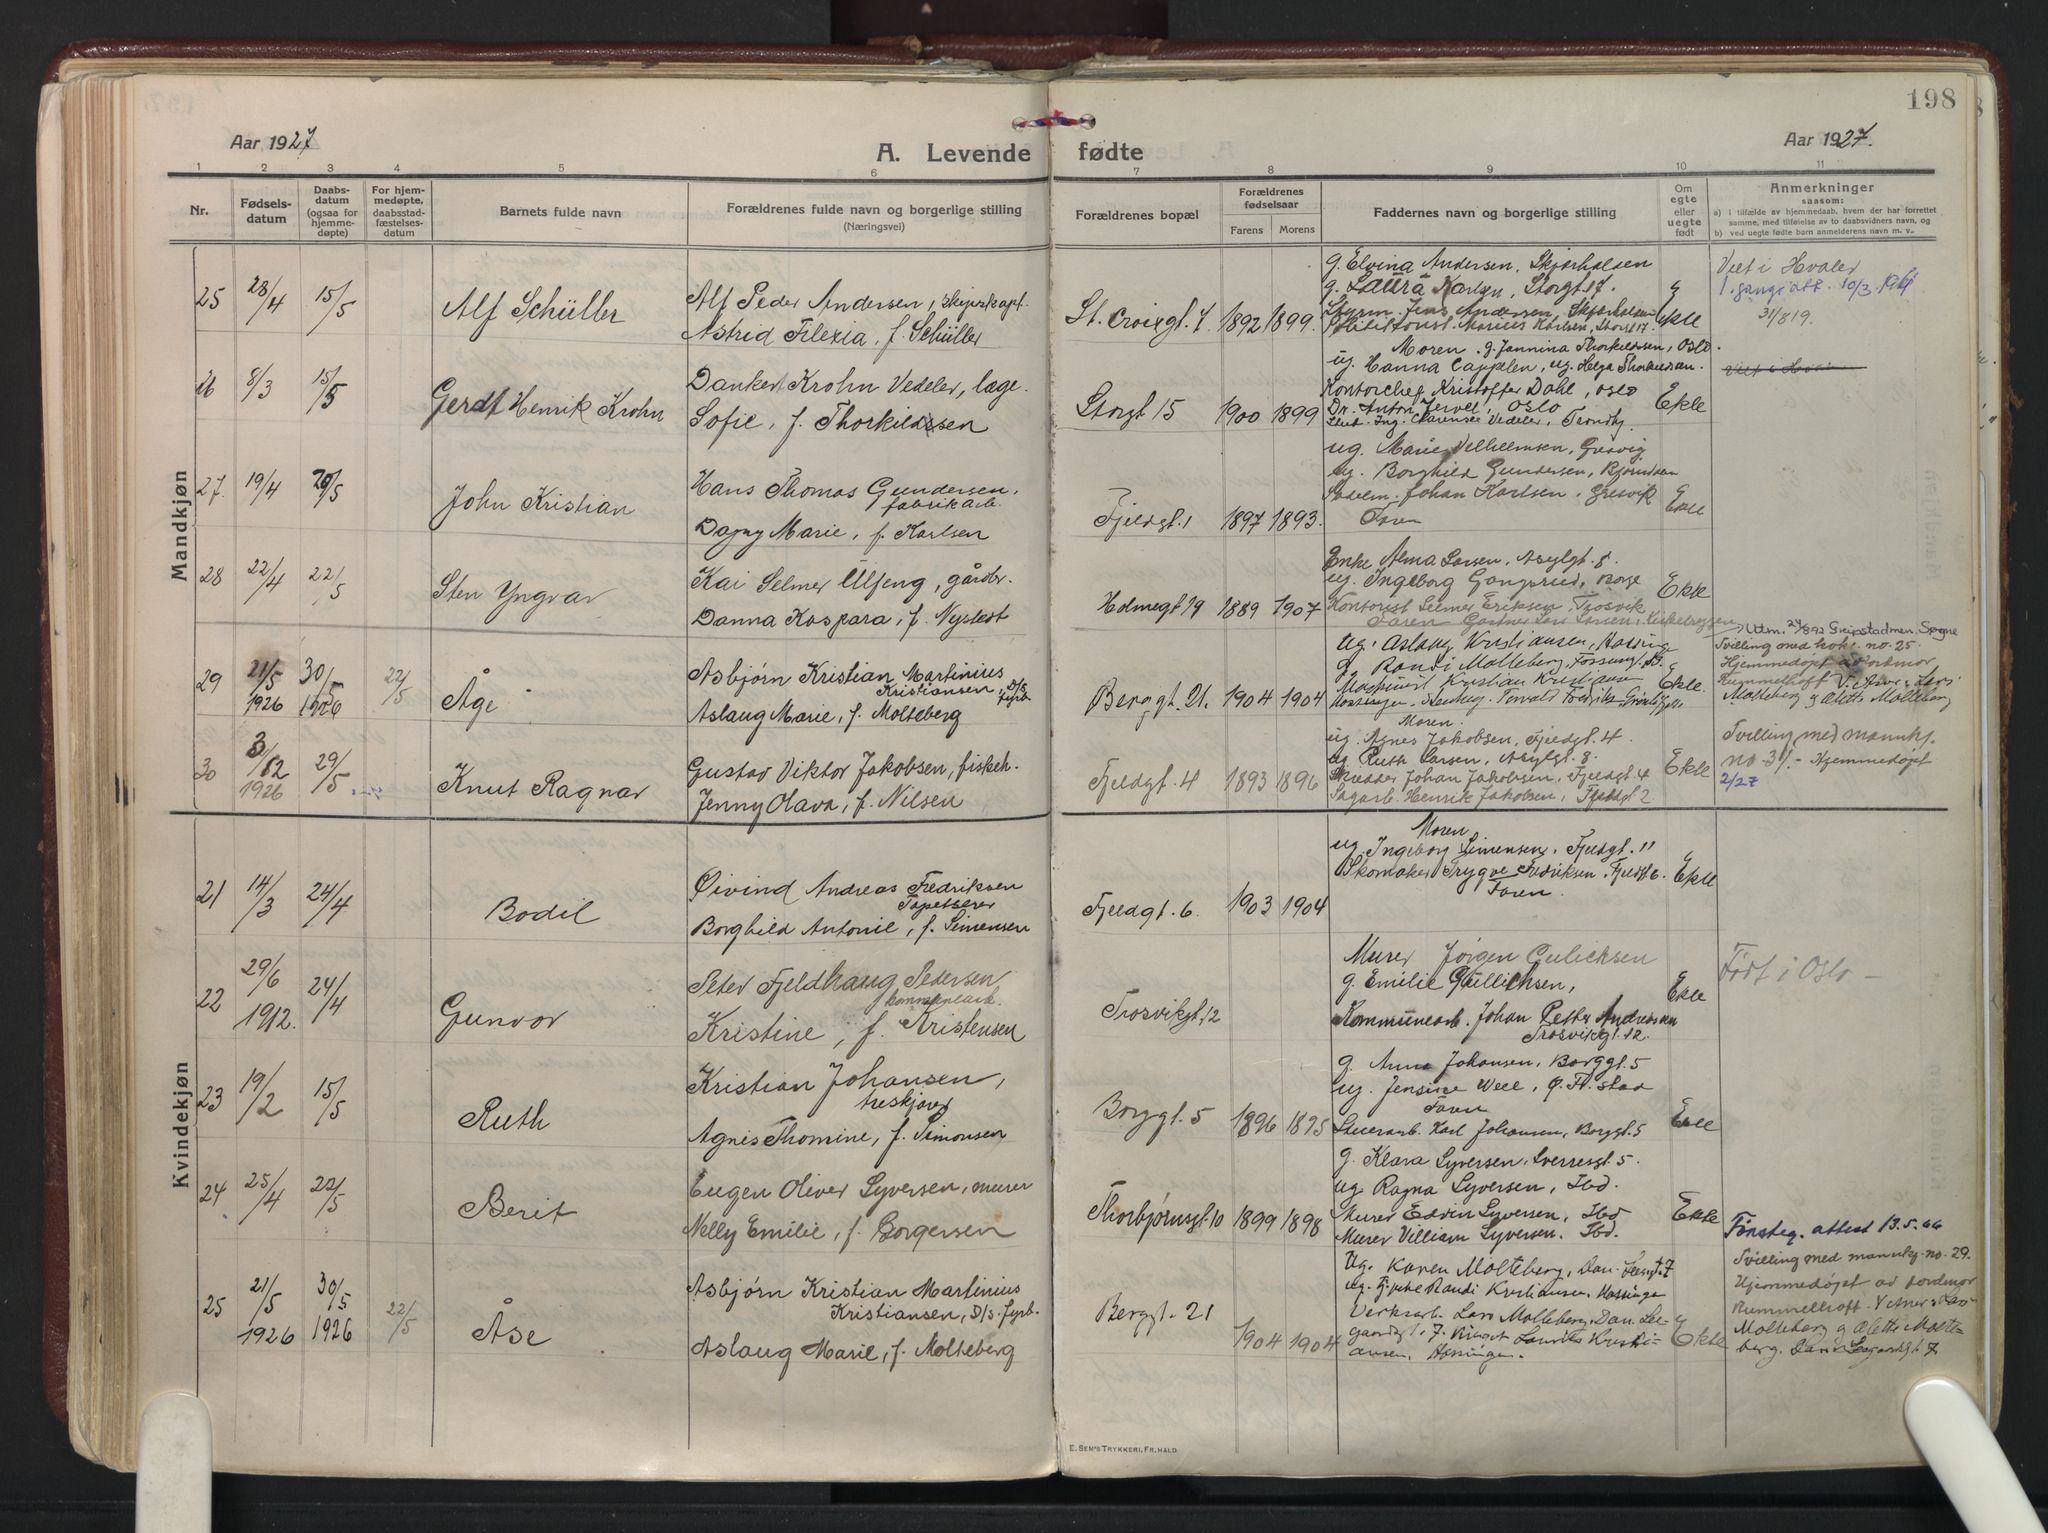 198
Aar 1927
A. Levende fødte
Aar 1927.
1 2 3 4 5 6 7 8 9 10 11
Nr.
Fødsels-
datum
Daabs-
datum
(ogsaa for
hjemme-
døpte)
For hjem-
medøpte,
daabsstad-
fæstelses-
datum
Barnets fulde navn
Forældrenes fulde navn og borgerlige stilling
(Næringsvei)
Forældrenes bopæl
Forældrenes
fødselsaar
Farens Morens
Faddernes navn og borgerlige stilling
Om
egte
eller
uegte
født
Anmerkninger
saasom:
a) I tilfælde av hjemmedaab, hvem der har forrettet
samme, med tilføielse av to daabsvidners navn, og
b) ved uegte fødte barn anmelderens navn m. v.
Mandkjøn
25 28/4 15/5
Alf Schüller
Alf Peder Andersen, skipskapt.
Astrid Filexia, f. Schüller
St. Croixgt. 7 1892 1899
g. Elvina Andersen, Skjærhalden
g. Laura Karlsen, Storgt 17.
Styrm. Jens Andersen, Skjærhalden
Politikonst. Marius Karlsen, Storgt 17.
Ekte
Viet i Hvaler
31/8 19.
26 8/3 15/5
Gerdt Henrik Krohn
Dankert Krohn Vedeler, læge
Sofie, f. Thorkildsen
Storgt 15 1900 1899
Moren. g. Jannina Thorkildsen, Oslo.
ug. Hanna Cappelen, ug. Helga Thorkildsen.
Kontorchef Kristoffer Dahl, Oslo
Dr. Anton Jervell, Oslo
Stud. Ing. Clarence Vedeler, Trondhj.
Ekte
27. 19/4 29/5
John Kristian
Hans Thomas Gundersen,
fabrikarb.
Dagny Marie, f. Karlsen
Fjeldgt. 1 1897 1893.
ug. Marie Vilhelmsen, Gresvig
ug. Borghild Gundersen,
Johan Karlsen, Gresvik
Faren
Ekte
28 22/4 22/5
Sten Yngvar
Kai Selmer Ulfeng, gårdbr.
Danna Kaspara, f. Nysledt
Holmegt 19 1889 1907
Enke Alma Larsen, Asylgt. 8.
ug. Ingeborg Gangsrud, Borge
Kontorist Selmer Eriksen, Trosvik
Faren Gartner Lars Larsen,
Ekte
29 21/5 1926 30/5 1926 22/5
Åge
Asbjørn Kristian Martinius
Kristiansen, D/S. fyrb.
Aslaug Marie, f. Molteberg
Berggt. 21. 1904 1904
ug. Aslaug Kristiansen,
g. Randi Molteberg,
Maskinist Kristian Kristiansen
Ekte
Tvilling med kvk. no. 25.
Hjemmedøpt av jordmor
Rummelhoff.
Molteberg og Aletti Molteberg
30 3/12 1926 29/5
Knut Ragnar
Gustav Viktor Jakobsen, fiskeh.
Jenny Olava, f. Nilsen
Fjeldgt. 4 1893 1896
Moren.
ug. Agnes Jakobsen, Fjeldgt. 4.
ug. Ruth Larsen, Asylgt. 8.
Skudder Johan Jakobsen, Fjeldgt. 4
Sagarb. Henrik Jakobsen, Fjeldgt 2.
Ekte
Tvilling med mannkj.
no 31. - Hjemmedøpt
2/27
Kvindekjøn
21 14/3 24/4
Bodil
Øivind Andreas Fredriksen
Tapetserer
Borghild Antonie, f. Simensen
Fjeldgt. 6. 1903 1904
Moren
ug. Ingeborg Simensen, Fjeldgt. 11
Skomaker Trygve Fredriksen, Fjeldgt 6.
Faren.
Ekte
22 29/6 1912. 24/4
Gunvor
Peter Fjeldhaug Pedersen
kommunearb.
Kristine, f. Kristensen
Trosvikgt. 12
Murer Jörgen Gulichsen
g. Emilie Gullichsen,
Kommunearb. Johan Petter Andresen
Trosvikgt. 12.
Ekte
Født i Oslo -
23 19/2 15/5
Ruth
Kristian Johansen,
treskjærer
Agnes Thomine, f. Simonsen
Borggt. 5 1896 1895
g. Anna Johansen, Borggt. 5
ug. Jensine Weel, Ø. Fr. stad
Faren
Stuerarb. Karl Johansen, Borggt. 5
Ekte
24 25/4 22/5
Berit
Eugen Oliver Syversen, murer
Nelly Emilie, f. Borgersen
Thorbjørnsgt. 10 1899 1898
g. Klara Syversen, Sverresgt. 5.
ug. Ragna Syversen, Ibd.
Murer Edvin Syversen, Ibd
Murer Villiam Syversen. Ibd.
Ekte
Fönsteg. attest 13.5.66
25 21/5 1926 30/5 1926 22/5
Åse
Asbjørn Kristian Martinius
Kristiansen, D/s. fyrb.
Aslaug Marie, f. Molteberg
Berggt. 21 1904 1904
Ug. Karen Molteberg, Dan. Leegt. 7
Randi Kristiansen, Hassingen
Verksarb. Lars Molteberg, Dan. Lee-
gaardgt. 7. Laurits Kristi-
ansen, Hassingen.
Ekte
Tvilling med mannkj. no. 29.
Hjemmedøpt av jordmor
Rummelhoff. Vitner: Lars
Molteberg og Aletti Molte-
berg. Dan Leegaardsgt 7
E. SEM'S TRYKKERI, FR.HALD